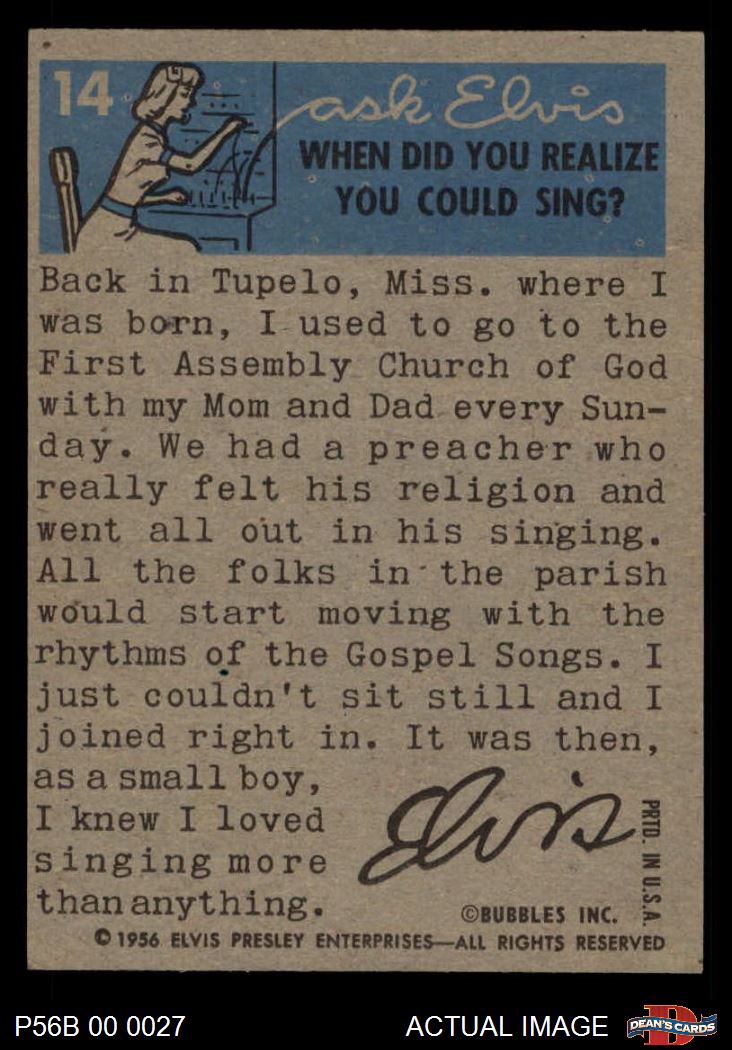 14
ask Elvis
WHEN DID YOU REALIZE
YOU COULD SING?
Back in Tupelo, Miss. where I
was born, I used to go to the
First Assembly Church of God
with my Mom and Dad every Sun-
day. We had a preacher who
really felt his religion and
went all out in his singing.
All the folks in the parish
would start moving with the
rhythms of the Gospel Songs. I
just couldn't sit still and I
joined right in. It was then,
as a small boy,
I knew I loved
singing more
than anything.
Elvis
PRTD. IN U.S.A.
©BUBBLES INC.
© 1956 ELVIS PRESLEY ENTERPRISES—ALL RIGHTS RESERVED
P56B 00 0027
ACTUAL IMAGE
D
DEAN'S CARDS